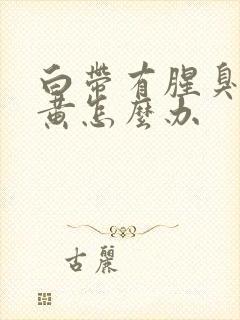 白帶有腥臭
黃怎麼办
古麗